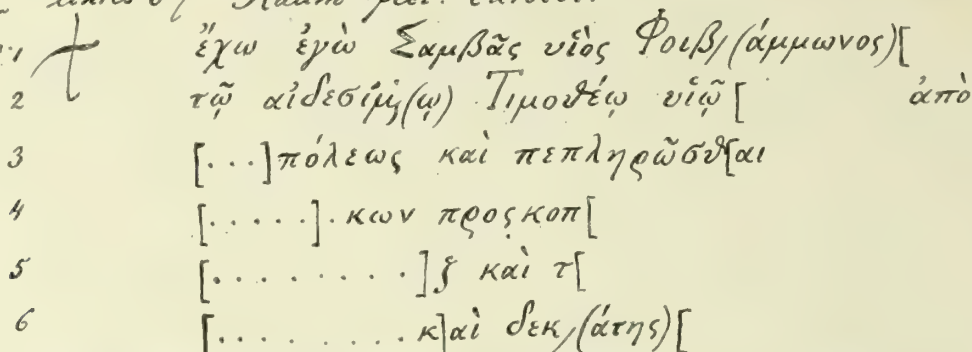 1 ἔχω ἐγὼ Σαμβᾶς υἱὸς Φοιβ/(άμμωνος)[
2 τῷ αἰδεσίμ̣/(ῳ) Τιμοθέῳ υἱῷ [ ἀπὸ
3 [...]πόλεως καὶ πεπληρῶσθ[αι
4 [.....].κων προςκοπ[
5 [........]ξ καὶ τ[
6 [.........κ]αὶ δεκ/(άτης)[